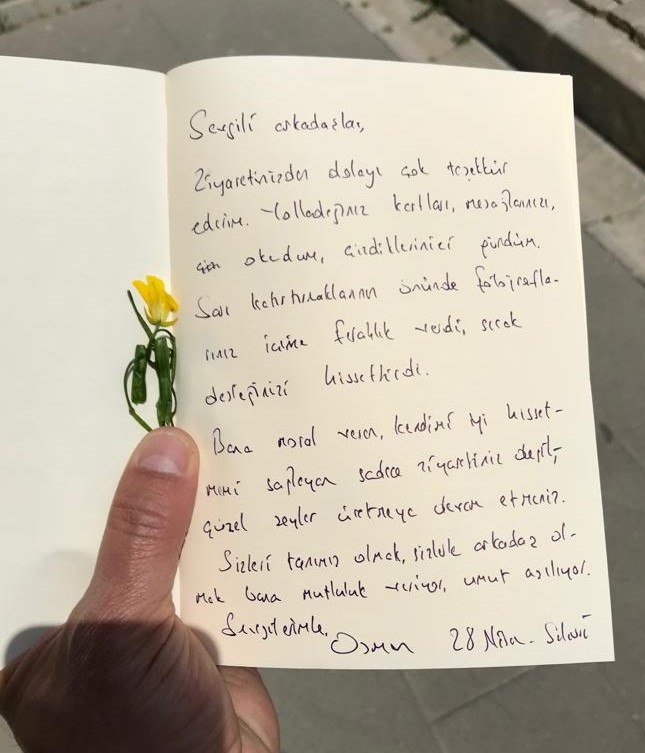 Sevgili arkadaşlar,
Ziyaretinizden dolayı çok teşekkür
ederim. Yolladığınız kartları, mesajlarınızı,
okudum, gördüm.
Sarı önünde fotoğrafla-
rınız içime ferahlık verdi, sıcak
desteğinizi hissettirdi.
Bana moral veren, kendimi iyi hisset-
memi sağlayan sadece ziyaretiniz değil,
güzel şeyler üretmeye devam etmeniz.
Sizleri tanımış olmak, sizlerle arkadaş ol-
mak bana mutluluk veriyor, umut aşılıyor.
Sevgilerimle, Osman 28 Nisan - Silivri